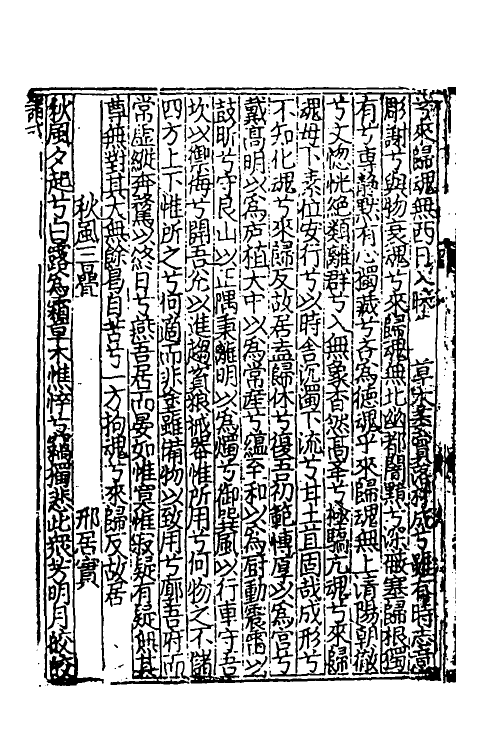 兮來歸魂無西日入暖些 草木萎實落材成兮雖有時志意
彫謝兮與物衰魂兮來歸魂無北幽都闇黯兮深蔽塞歸根獨
有兮專静黙有心獨藏兮吝為德魂乎來歸魂無上清陽朝徹
兮文惚恍絕類離群兮入無象杳然髙舉兮極驕亢魂兮來歸
魂毋下素位安行兮以時舍沉濁下流兮甘土苴固哉成形兮
不知化魂兮來歸反故居盍歸休兮復吾初範慱厚以為宫兮
戴髙明以為廬植大中以為常産兮藴至和以為厨動震雷以
鼓昕兮守艮山以止隅秉離明以為燭兮御巽風以行車守吾
坎以禦侮兮開吾兊以進趨資糗械器惟所用兮何物之不儲
四方上下惟所之兮何適而非塗雖備物以致用兮廓吾府而
常虚縱奔騖以終日兮燕吾居而晏如惟寞惟寂疑有疑無其
尊無對其大無餘曷自苦兮一方拘魂兮來歸反故居
秋風三疊 邢居實
秋風夕起兮白露為霜草木憔悴兮竊獨悲此衆芳明月皎皎